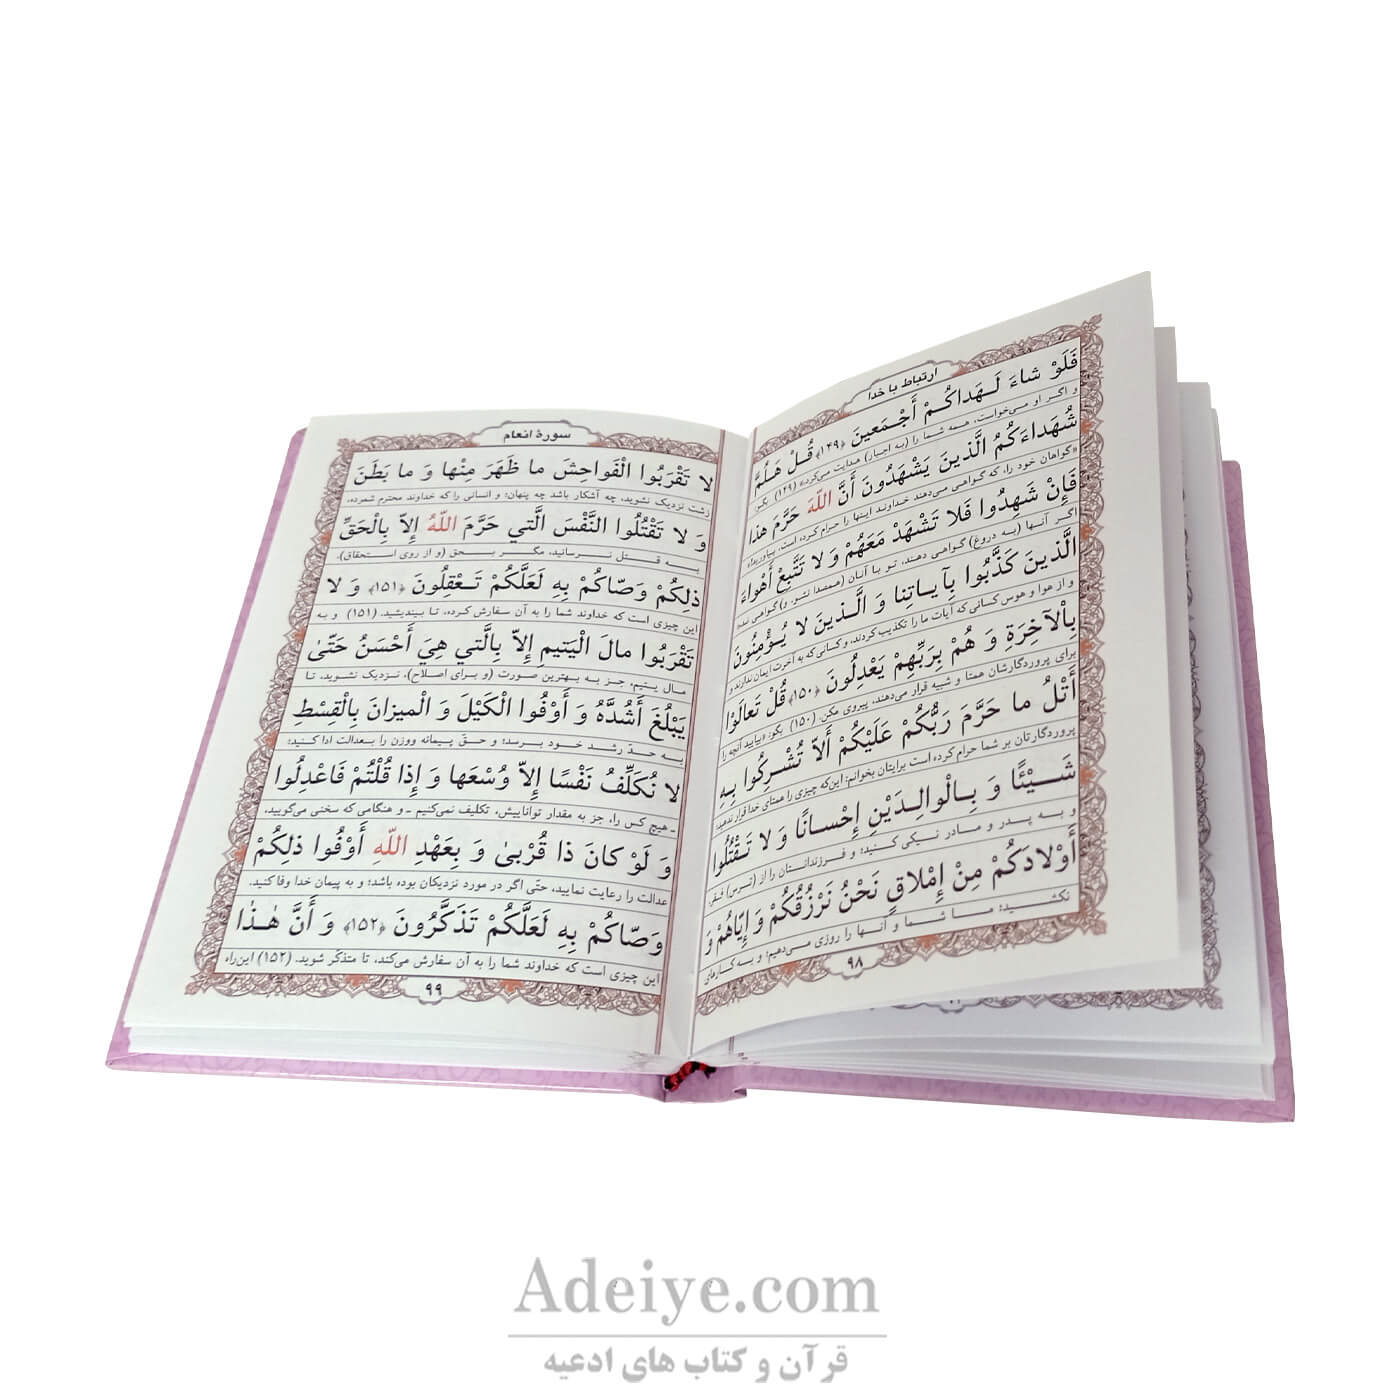 ارتباط با خدا
فَلَوْ شاءَ لَـهَداكُـمْ أَجْـمَعينَ ﴿١٤٩﴾ قُـلْ هَـلُمَّ
و اگـر او مـی‌خواست، همه شما را (به اجبار) هدایت می‌کرد.» (۱۴۹) بگو:
شُهَداءَكُمُ الَّذينَ يَشْهَدُونَ أَنَّ اللّهَ حَرَّمَ هذا
«گواهان خود را، که گواهی می‌دهند خداوند اینها را حرام کرده است، بیاورید!»
فَإِنْ شَهِدُوا فَلا تَشْهَدْ مَعَهُمْ وَ لا تَتَّبِعْ أَهْواءَ
اگر آنها (به دروغ) گواهی دهند، تو با آنان (همصدا نشو، و) گواهی نده!
الَّذينَ كَذَّبُوا بِآيـاتِنا وَ الَّـذينَ لا يُـؤْمِنُونَ
و از هوا و هوس کسانی که آیات ما را تکذیب کردند، و کسانی که به آخرت ایمان ندارند و
بِالْآخِرَةِ وَ هُمْ بِرَبِّهِمْ يَعْدِلُونَ ﴿١٥٠﴾ قُلْ تَعالَوْا
برای پروردگارشان همتا و شبیه قرار می‌دهند، پیروی مکن. (۱۵۰) بگو: «بیایید آنچه را
أَتْلُ ما حَرَّمَ رَبُّكُمْ عَلَيْكُمْ أَلاّ تُشْـرِكُوا بِـهِ
پروردگارتان بر شما حرام کرده است برایتان بخوانم: این‌که چیزی را همتای خدا قرار ندهید؛
شَـيْئًا وَ بِـالْوالِـدَيْنِ إِحْسـانًا وَ لا تَـقْتُلُوا
و به پدر و مادر نـیکی کنید؛ و فـرزندانتـان را از (تـرس) فـقر،
أَوْلادَكُمْ مِنْ إِمْلاقٍ نَحْنُ نَرْزُقُكُمْ وَ إِيّاهُمْ وَ
نکشید؛ مـا شـما و آنـها را روزی مـی‌دهیم؛ و بـه کـارهای
۹۸
سورهٔ انعام
لا تَقْرَبُوا الْفَواحِشَ ما ظَهَرَ مِنْها وَ ما بَطَنَ
زشت نزدیک نشوید، چه آشکار باشد چه پنهان؛ و انسانی را که خداوند محترم شمرده،
وَ لا تَقْتُلُوا النَّفْسَ الَّتي حَرَّمَ اللّهُ إِلاّ بِالْحَقِّ
به قـتل نـرسانید، مگـر بـحق (و از روی استحقاق).
ذلِكُمْ وَصّاكُمْ بِهِ لَعَلَّكُمْ تَـعْقِلُونَ ﴿١٥١﴾ وَ لا
این چیزی است که خداوند شما را به آن سفارش کرده، تا بیندیشید. (۱۵۱) و به
تَقْرَبُوا مالَ الْيَتيمِ إِلاّ بِالَّتي هِيَ أَحْسَنُ حَتّىٰ
مال یتیم، جز به بهترین صورت (و برای اصلاح)، نزدیک نشوید، تا
يَبْلُغَ أَشُدَّهُ وَ أَوْفُوا الْكَيْلَ وَ الْميزانَ بِالْقِسْطِ
به حدّ رشد خود برسد؛ و حقّ پیمانه ووزن را بعدالت ادا کنید؛
لا نُكَلِّفُ نَفْسًا إِلاّ وُسْعَها وَ إِذا قُلْتُمْ فَاعْدِلُوا
ـ هیچ کس را، جز به مقدار تواناییش، تکلیف نمی‌کنیم ـ و هنگامی که سخنی می‌گویید،
وَ لَوْ كانَ ذا قُرْبىٰ وَ بِعَهْدِ اللّهِ أَوْفُوا ذلِكُمْ
عدالت را رعایت نمایید، حتّی اگر در مورد نزدیکان بوده باشد؛ و به پیمان خدا وفا کنید.
وَصّاكُمْ بِهِ لَعَلَّكُمْ تَذَكَّرُونَ ﴿١٥٢﴾ وَ أَنَّ هـٰذا
این چیزی است که خداوند شما را به آن سفارش می‌کند، تا متذکّر شوید. (۱۵۲) این‌راه
۹۹
Adeiye.com
قرآن و کتاب های ادعیه